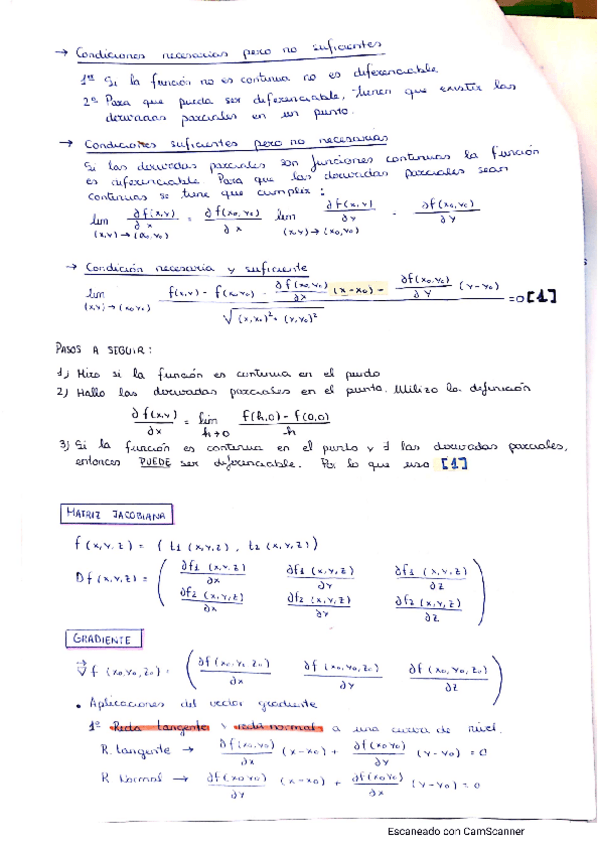 → Condiciones necesarias pero no suficientes
1ª Si la función no es continua no es diferenciable.
2ª Para que pueda ser diferenciable, tienen que existir las
derivadas parciales en un punto.
→ Condiciones suficientes pero no necesarias
Si las derivadas parciales son funciones continuas la función
es diferenciable Para que las derivadas parciales sean
continuas se tiene que cumplir :
lim ∂f(x,y)/∂x = ∂f(x0,y0)/∂x lim ∂f(x,y)/∂y - ∂f(x0,y0)/∂y
(x,y)→(x0,y0) (x,y)→(x0,y0)
→ Condición necesaria y suficiente
lim f(x,y) - f(x0,y0) - ∂f(x0,y0)/∂x (x-x0) - ∂f(x0,y0)/∂y (y-y0) =0 [1]
(x,y)→(x0,y0) √(x,x0)²+(y,y0)²
PASOS A SEGUIR :
1) Miro si la función es continua en el punto
2) Hallo las derivadas parciales en el punto. Utilizo la definición
∂f(x,y)/∂x = lim f(h,0) - f(0,0)/h
h→0
3) Si la función es continua en el punto y ∃ las derivadas parciales,
entonces PUEDE ser diferenciable. Por lo que uso [1]
MATRIZ JACOBIANA
f(x,y,z) = ( t1 (x,y,z) , t2 (x,y,z))
Df(x,y,z) = ( ∂f1 (x,y,z)/∂x ∂f1 (x,y,z)/∂y ∂f1 (x,y,z)/∂z
∂f2 (x,y,z)/∂x ∂f2 (x,y,z)/∂y ∂f2 (x,y,z)/∂z )
GRADIENTE
∇f (x0,y0,z0) = ( ∂f(x0,y0,z0)/∂x ∂f(x0,y0,z0)/∂y ∂f(x0,y0,z0)/∂z )
• Aplicaciones del vector gradiente
1º Recta tangente y recta normal a una curva de nivel.
R. tangente → ∂f(x0,y0)/∂x (x-x0) + ∂f(x0,y0)/∂y (y-y0) = 0
R Normal → ∂f(x0,y0)/∂y (x-x0) + ∂f(x0,y0)/∂x (y-y0) = 0
Escaneado con CamScanner